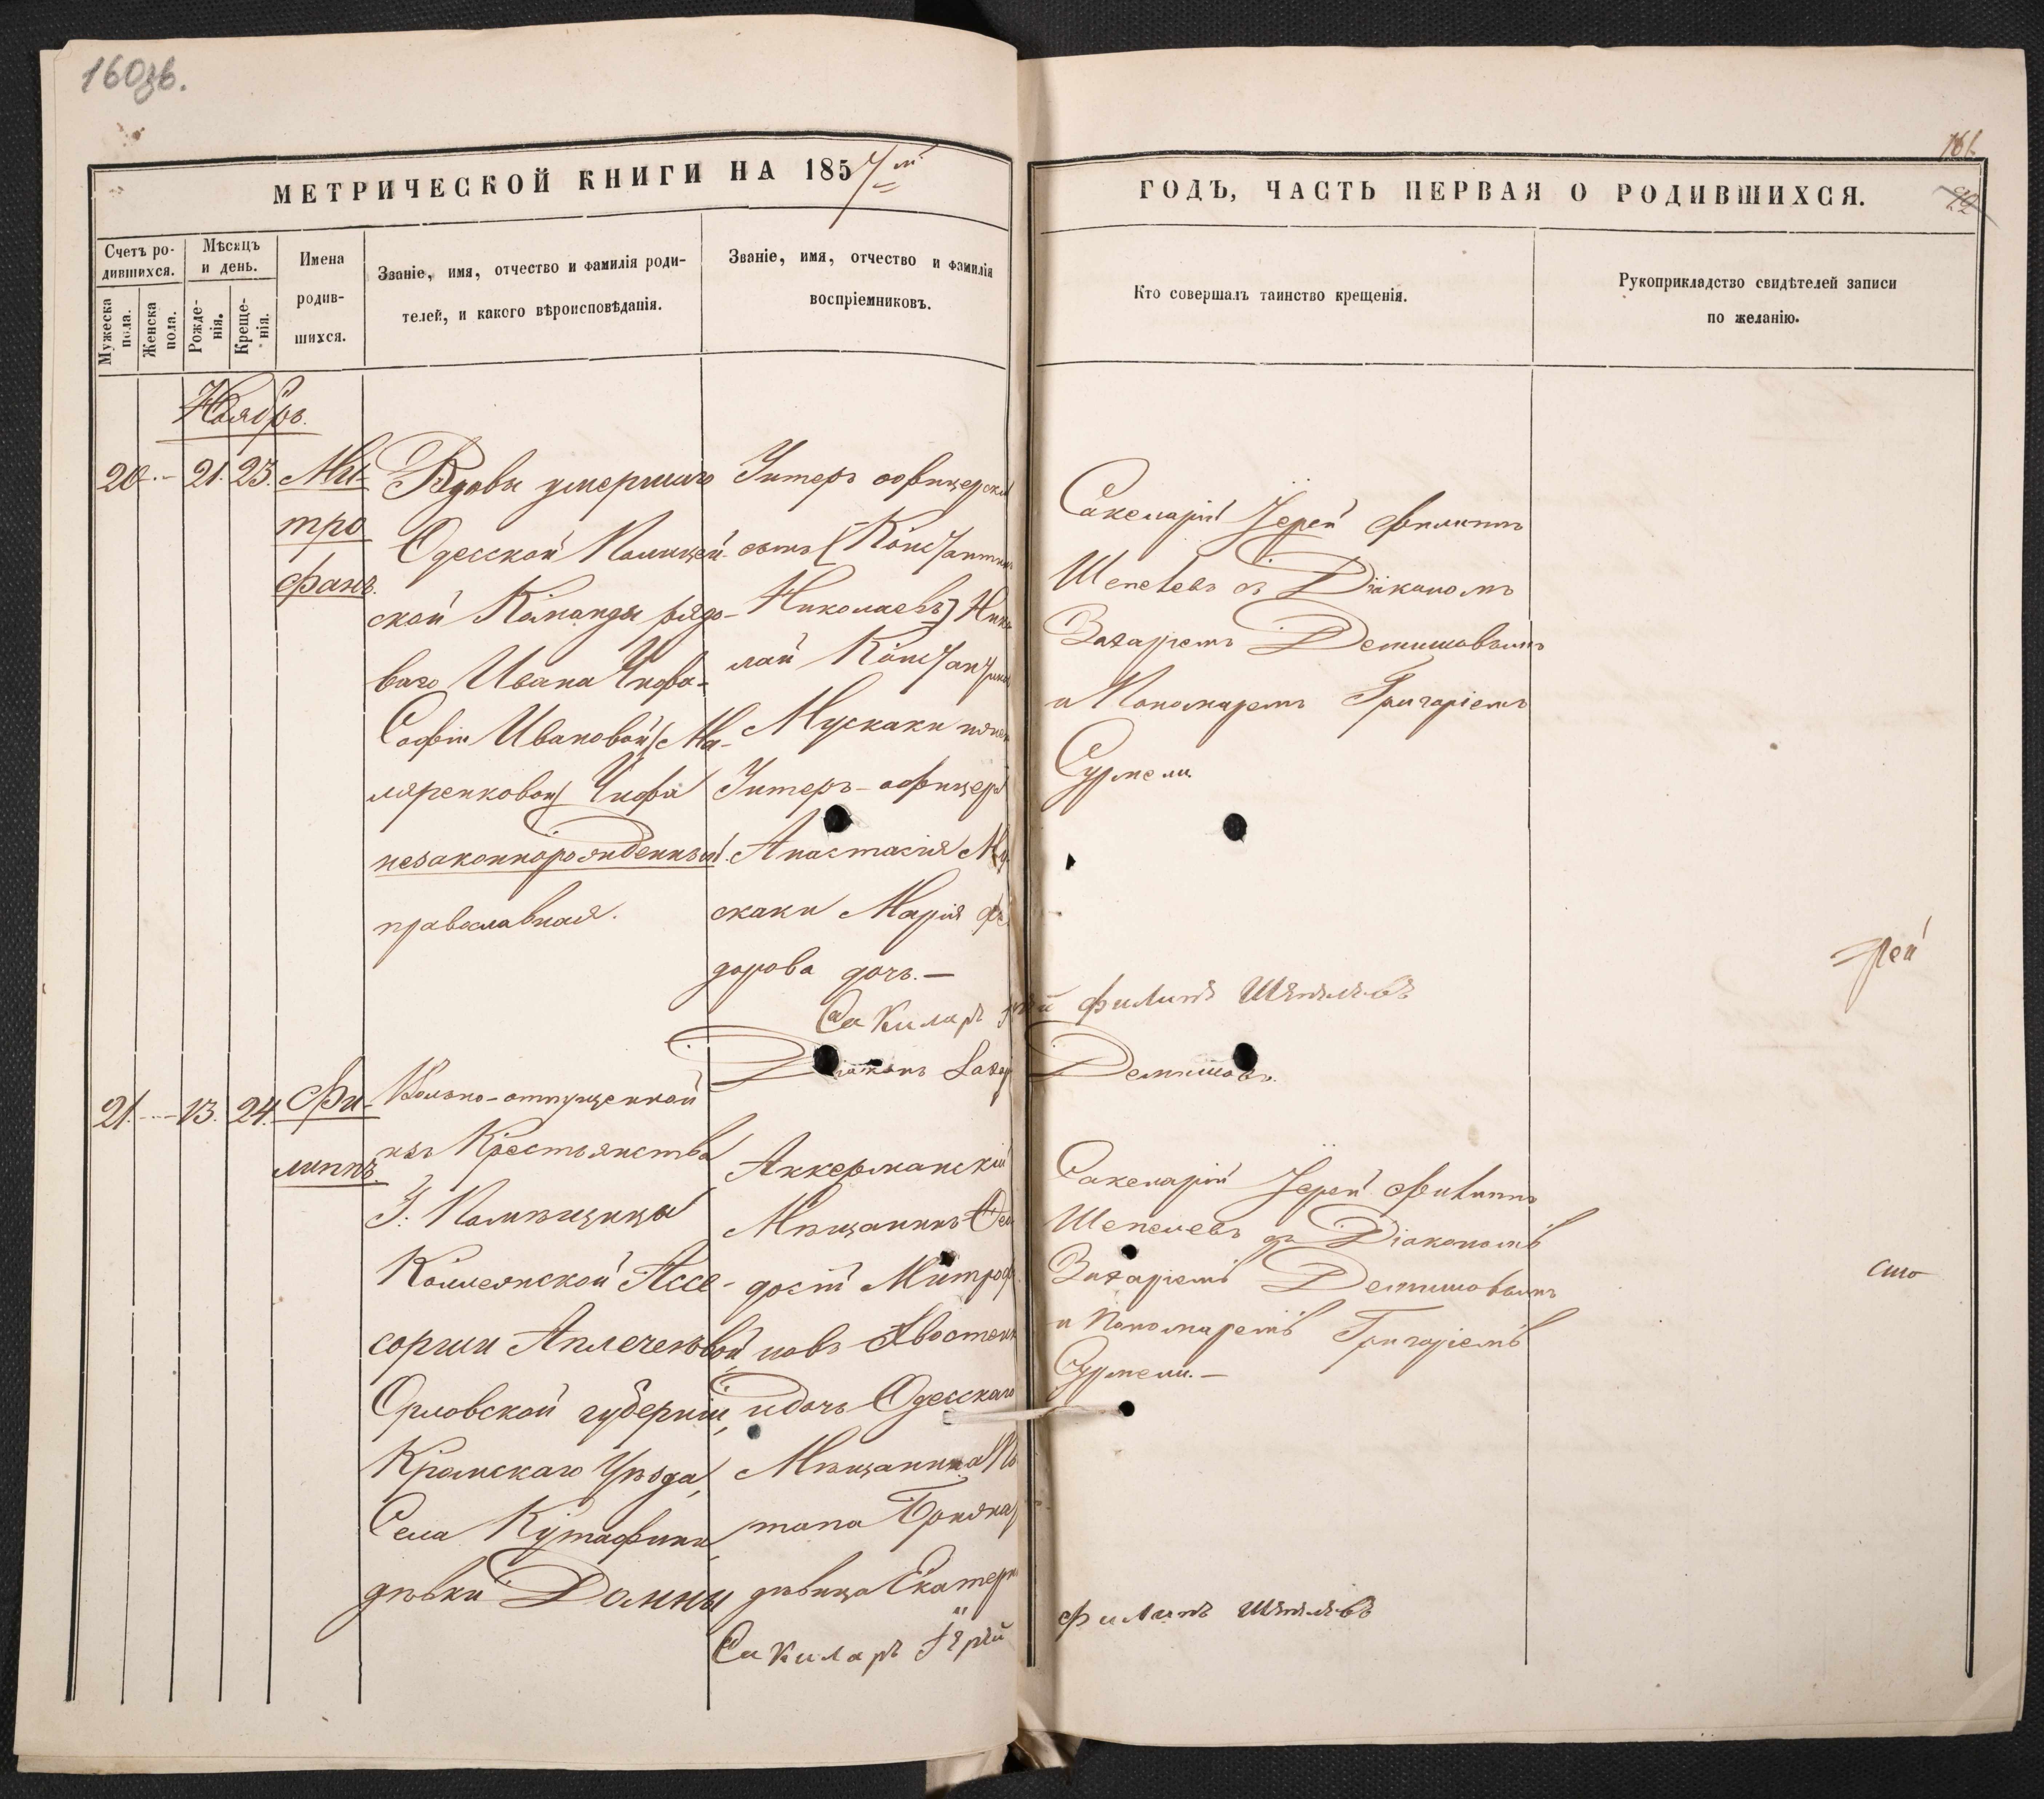 160зв.
161.
МЕТРИЧЕСКОЙ КНИГИ НА 1857й
ГОДЪ, ЧАСТЬ ПЕРВАЯ О РОДИВШИХСЯ.
Счетъ ро-
дившихся.
Мужеска
пола.
Женска
пола.
Мѣсяцъ
и день.
Рожде-
нія.
Креще-
нія.
Имена
родив-
шихся.
Званіе, имя, отчество и фамилія роди-
телей, и какого вѣроисповѣданія.
Званіе, имя, отчество и фамилія
воспріемниковъ.
Кто совершалъ таинство крещенія.
Рукоприкладство свидѣтелей записи
по желанію.
Ноябрь.
20. 21. 23.
Ми-
тро
фанъ.
Вдовы умершаго
Одесской Полицей-
ской Команды рядо-
ваго Ивана Чифа-
Софіи Ивановой (Ма-
ляренковой) Чифа
незаконнорожденный
православная.
Унтеръ офицерскій
сынъ (Константинъ
Николаевъ) Нико
лай Константинов
Мускаки
Унтеръ-офицер
Анастасия Му
скаки Марія Фе
дорова дочь.—
Сакеларій Іерей Филиппъ
Шепелевъ съ Діакономъ
Захаріемъ Демишовымъ
и Пономаремъ Григоріемъ
Сурмели.
Сакиларъ Іерей Филипъ Шепелевъ
Діаконъ Захар Демишовъ.
рей
21. 13. 24.
Фи-
липпъ.
Вольно-отпущенной
изъ Крестьянства
Г. Помѣщицы
Коллежской Ассе-
сорши Аплечеевой
Орловской губерніи,
Кромскаго Уѣзда,
Села Кутафина
дѣвки Домны
Аккерманскій
Мѣщанинъ Фео
досій Митроф
новъ Хвостен
и дочь Одесскаго
Мѣщанина
дѣвица Екатери
Сакеларій Іерей Филиппъ
Шепелевъ съ Діакономъ
Захаріемъ Демишовымъ
и Пономаремъ Григоріемъ
Сурмели.—
Сакиларъ Іерей Филипъ Шепелевъ